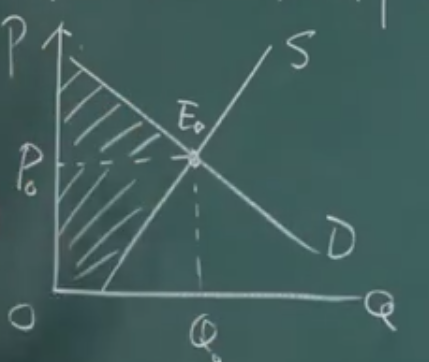 P
S
E₀
P₀
D
O
Q
Q₀